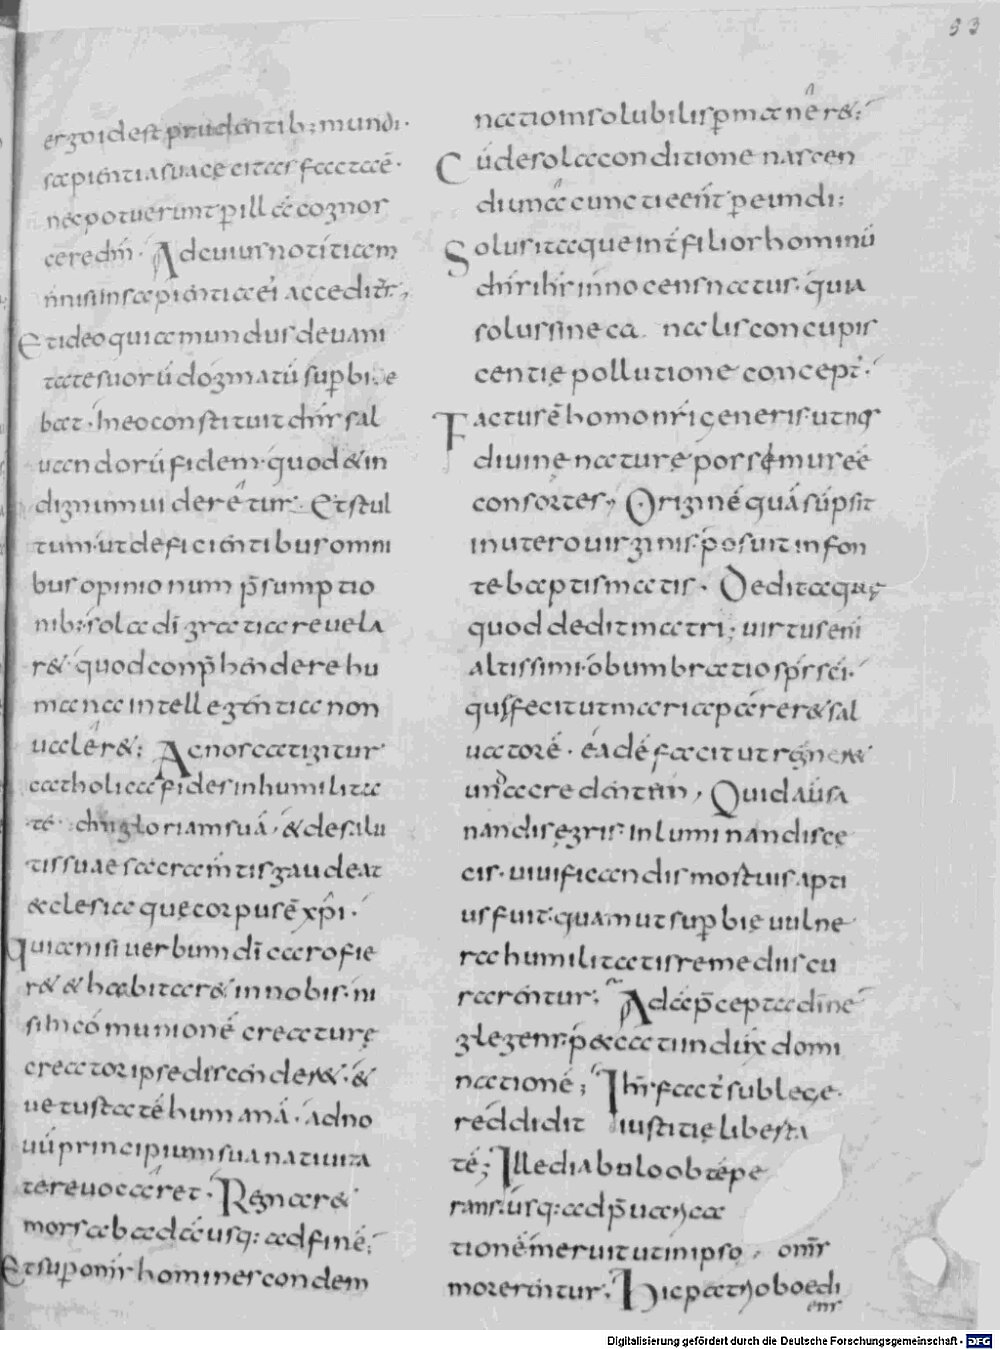 93
ergo idest prudentib; mundi·
sapientia suae citas facta ē·
nec potuerunt p illā cognos
cere dm̄· Ad cuius notitiam
n̄ nisi in sapientia ei acceditr̄·,
Et ideo quia mundus de vani
tate suorū dogmatū supbie
bat· In eo constituit dn̄s sal
uandorū fidem· quod & in
dignum uideretur· Et stul
tum· ut deficientibus omni
bus opinionum p̄sumptio
nib; sola dī gratia reuela
r&· quod conp̄hendere hu
mana intellegentia non
ualer&: Agnoscat igitur
catholica fides in humilita
tē dn̄i gloriam suā· & de salu
tis suae sacramtis gaudeat
ecclesia quę corpus ē xp̄i·
quia nisi uerbum dī caro fie
r& & habitar& in nobis· ni
si in cōmunionē creaturę
creator ipse discender&· &
uetustatē humanā· ad no
uū principium sua natiuita
te reuocaret· Regnar&
mors ab adā usq: ad finē·;
Et sup om̄s homines condem
natio insolubilis pmaner&·;
Cū de sola conditione nascen
di una cunctis eēnt pereundi:
Solus itaque int̄ filios hominū
dn̄s ih̄s innocens natus· quia
solus sine carnalis concupis
centię pollutione concept'·
Factus ē homo nr̄i generis· ut nos
diuinę naturę possemus eē
consortes, Originē quā sūpsit
in utero uirginis· posuit in fon
te baptismatis· Dedit aquę
quod dedit matri; uirtus eni
altissimi· obumbratio sp̄s sc̄i·
quę fecit ut maria pareret sal
uatorē· eādē facit ut regener&
unda credentem, Quid aūt sa
nandis ęgris· inluminandis cę
cis· uiuificandis mortuis apti
us fuit· quam ut supbię uulne
ra humilitatis remediis cu
rarentur; Adā p̄cepta dī ne
glegens· peccati induxit domi
nationē; Ih̄s fact' sub lege·
reddidit iustitię liberta
tē; Ille diabulo obtēpe
rans· usq: ad p̄uarica
tionē· meruit ut in ipso· om̄s
morerentur; Hic patri oboedi
ens
Digitalisierung gefördert durch die Deutsche Forschungsgemeinschaft - DFG